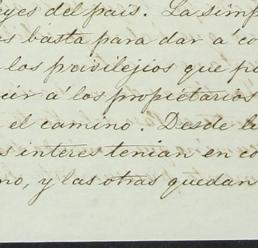 eyes del pais. La simp
s basta para dar á co
los privilejios que p
cir á los propietarios
el camino. Desde l
s interes tenian en co
no, y las otras quedan